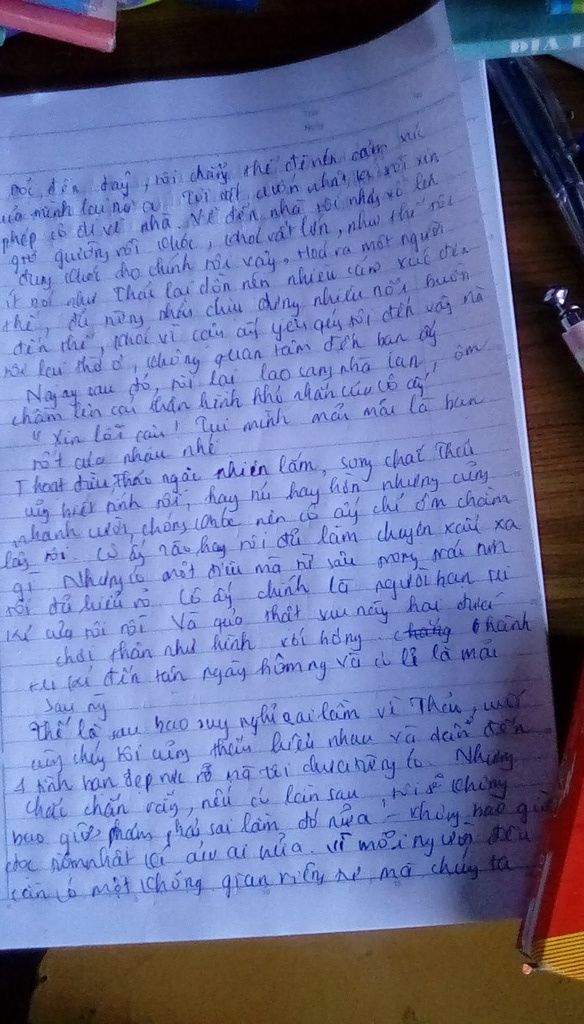 ĐỊA
đọc đến đây, tôi chẳng thể để nén cảm xúc
của mình lại nữa. Tôi cất cuốn nhật kí rồi xin
phép cô đi về nhà. Về đến nhà tôi nhảy vồ lên
giường rồi khóc, khóc rất lớn, như thể tôi
đang khóc cho chính tôi vậy. Hoá ra một người
ít nói như Thảo lại dồn nén nhiều cảm xúc đến
thế, đã từng phải chịu đựng nhiều nỗi buồn
đến thế, khóc vì cậu ấy yêu quý tôi đến vậy mà
tôi lại thờ ơ, không quan tâm đến bạn ấy
Ngay sau đó, tôi lại lao sang nhà Lan, ôm
chầm lên cái thân hình nhỏ nhắn của cô ấy
"Xin lỗi cậu! Tụi mình mãi mãi là bạn
tốt của nhau nhé
Thoạt đầu Thảo ngạc nhiên lắm, song chắc Thảo
cũng biết tính tôi, hay hờn nhưng cũng
nhanh cười, chóng khóc nên cô ấy chỉ ôm chầm
lấy tôi. Cô ấy nào hay tôi đã làm chuyện xấu xa
gì Nhưng có một điều mà từ sâu trong trái tim
tôi đã hiểu rõ Cô ấy chính là người bạn tri
kỉ của tôi rồi Và quả thật sau này hai đứa
chơi thân như hình với bóng thành
tri kỉ đến tận ngày hôm ny và có lẽ là mãi
sau ny
Thế là sau bao suy nghĩ sai lầm về Thảo, cuối
cùng chúng tôi cũng thấu hiểu nhau và dẫn đến
1 tình bạn đẹp rực rỡ mà tôi chưa từng có. Nhưng
chắc chắn rằng, nếu có lần sau, tôi sẽ không
bao giờ phạm phải sai lầm đó nữa - không bao giờ
đọc trộm nhật kí của ai nữa. Vì mỗi người đều
cần có một không gian riêng tư mà chúng ta